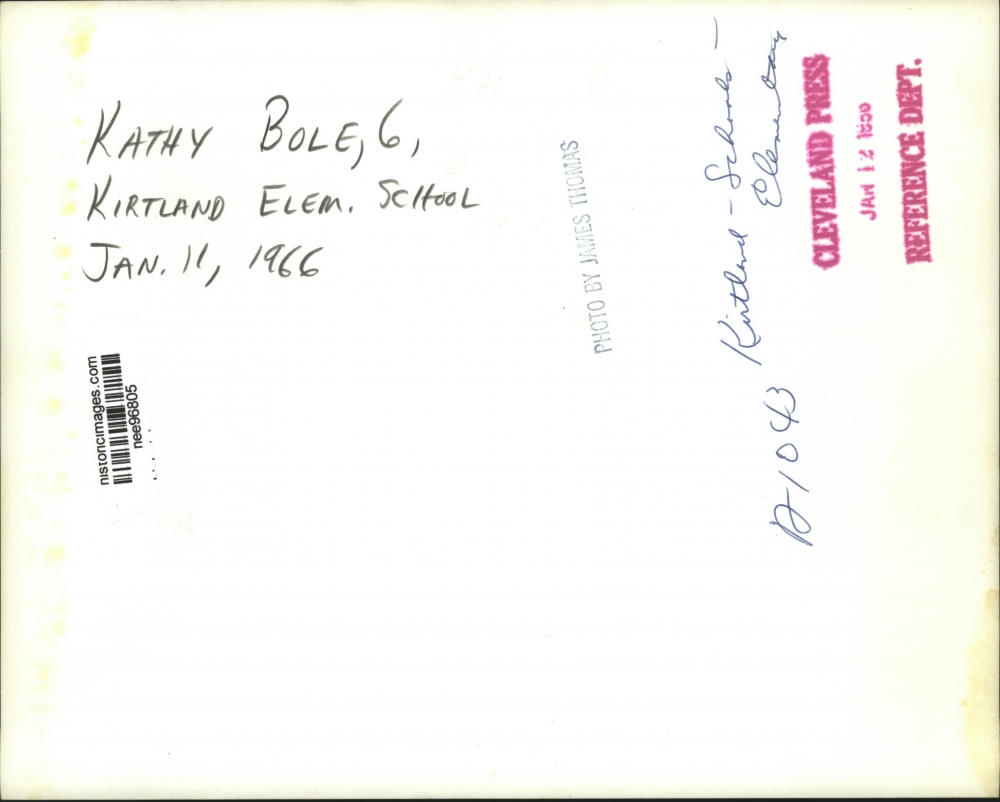 KATHY BOLE, 6,
KIRTLAND ELEM. SCHOOL
JAN. 11, 1966
historicimages.com
nee96805
PHOTO BY JAMES THOMAS
Kirtland - Schools -
Elementary
D-1043
CLEVELAND PRESS
JAN 12
REFERENCE DEPT.